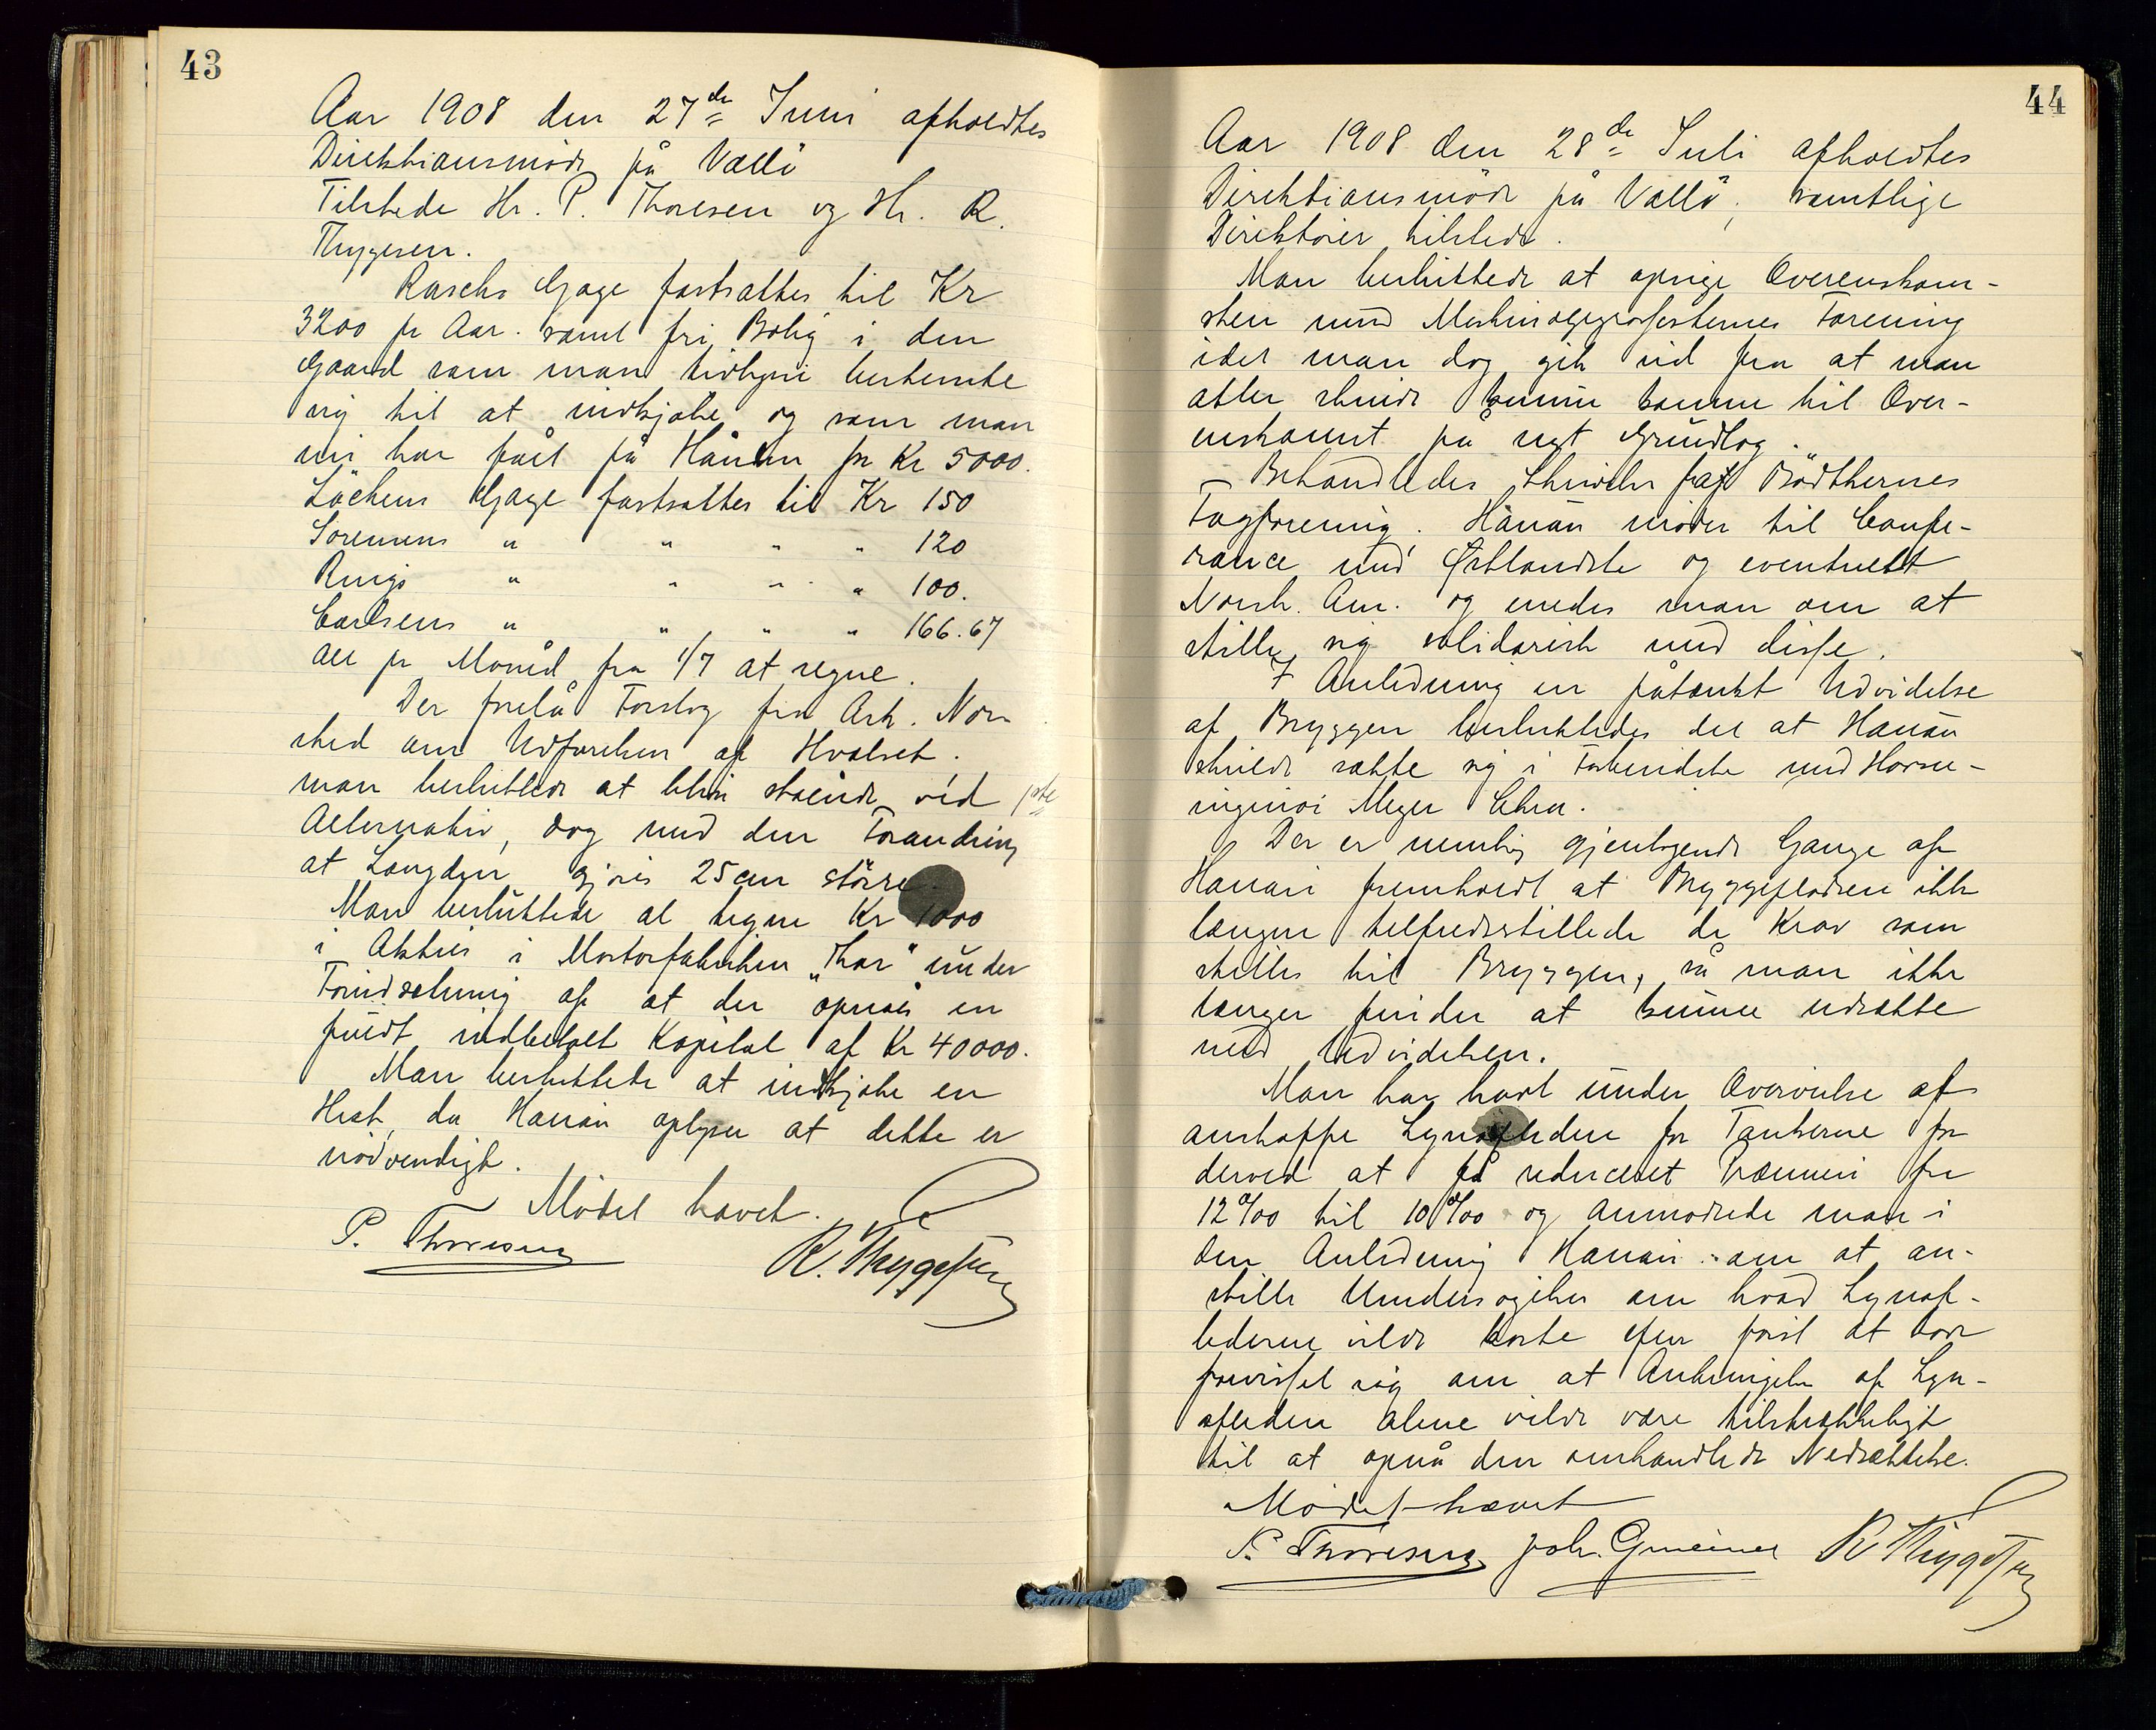 43
Aar 1908 den 27de Juni afholdtes
Direktionsmøde på Vallö
Tilstede Hr. P. Thoresen og Hr. R.
Thygesen.
Raschs Gage fastsattes til Kr
3200 pr Aar. samt fri Bolig i den
Gaard som man tidligere bestemte
sig til at indkjøbe og som man
nu har fåét på Hånden for Kr 5000.
Löchens Gage fastsattes til Kr 150
Sorensens " " " " 120
Rings " " " " 100.
Carlsens " " " " 166.67
alt pr Månéd fra 1/7 at regne.
Der forelå Forslag fra Ark. Nor
sted om Udførelsen af Hvalset.
man besluttede at blive stående ved 1ste
Alternativ, dog med den Forandring
at Længden gjøres 25 cm større.
Man besluttede at tegne Kr 1000
i Aktier i Mortorfabrikken „Thor" under
Forudsetning af at der opnåes en
fuldt indbetalt Kapital af Kr 40000.
Man besluttede at indkjøbe en
Hest, da Hanán oplyser at dette er
nödvendigt.
Mödet hævet.
P. Thoresen R. Thygesen
44
Aar 1908 den 28de Juli afholdtes
Direktionsmöde på Vallö, samtlige
Direktører tilstede.
Man besluttede at opsige Overenskom-
sten med Maskinogprofesternes Forening
idet man dog gik ud fra at man
atter skulde kunne komme til Over-
enskomst på nyt Grundlag.
Behandledes Skrivelse fra Bödkernes
Fagforening. Hanán möder til Confe-
rance med Østlandske og eventuelt
Norsk. Am. og enedes man om at
stille sig solidarisk med disse.
I Anledning en påtænkt Udvidelse
af Bryggen besluttedes det at Hanán
skulde sætte sig i Forbindelse med Havne-
ingeniør Meyer Chra.
Der er nemlig gjentagende Gange af
Hanán fremholdt at Bryggepladsen ikke
længer tilfredsstillede de Krav som
stilles til Bryggen, så man ikke
længer finder at kunne udsætte
med Udvidelsen.
Man har havt under Overveielse at
anskaffe Lynafledere for Tankerne for
derved at få reduceret Præmien fra
12 0/00 til 10 0/00 og anmodede man i
den Anledning Hanán om at an-
stille Undersøgelser om hvad Lynaf-
lederne vilde koste efter først at have
forvisset sig om at Anbringelse af Lyn-
afledere alene vilde være tilstrækkeligt
til at opnå den omhandlede Nedsættelse.
Mødet hævet
P. Thoresen R Thygesen